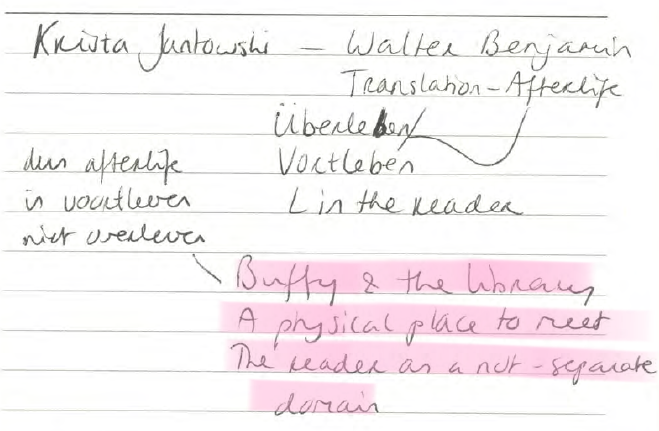 Krista Jantowski – Walter Benjamin
Translation – Afterlife
Überleben
Vortleben
dus afterlife
in voortleven
niet overleven
L in the reader
Buffy & the library
A physical place to meet
The reader as a not-separate
domain